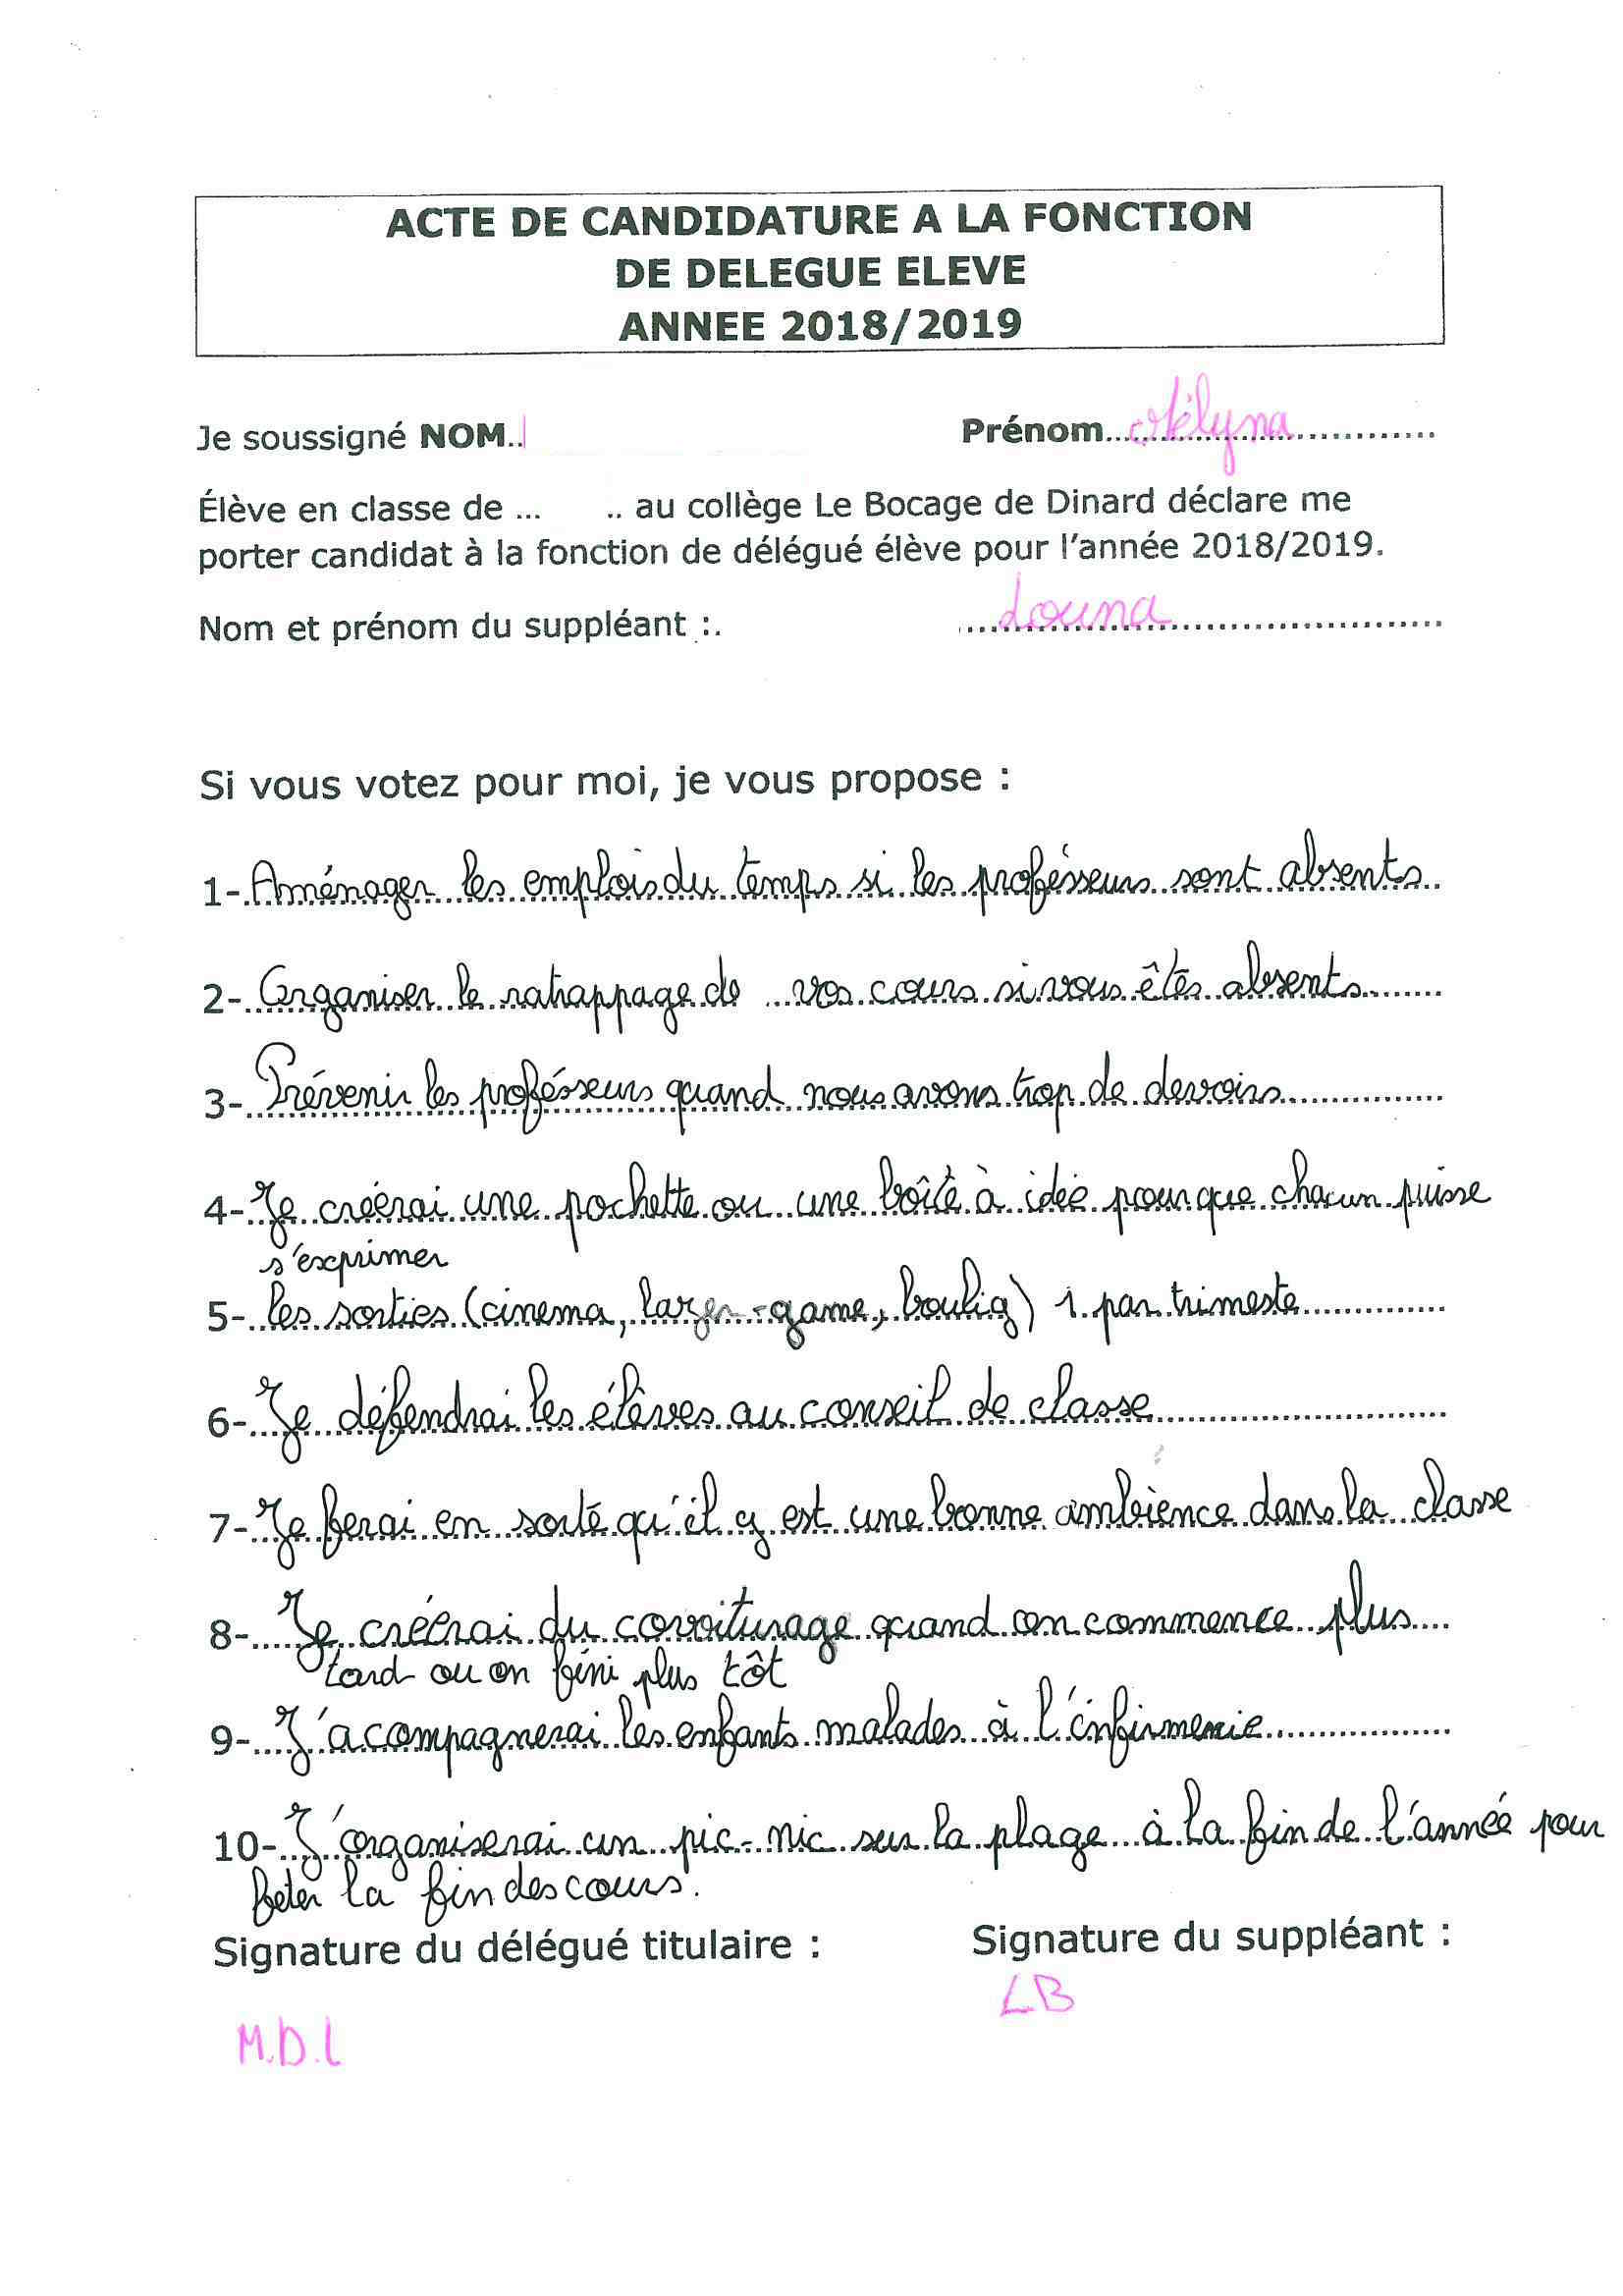 ACTE DE CANDIDATURE A LA FONCTION
DE DELEGUE ELEVE
ANNEE 2018/2019
Je soussigné NOM.. Prénom...Mélyna...
Élève en classe de ... .. au collège Le Bocage de Dinard déclare me
porter candidat à la fonction de délégué élève pour l'année 2018/2019.
Nom et prénom du suppléant :. Louna
Si vous votez pour moi, je vous propose :
1- Aménager les emplois du temps si les proféseurs sont absents
2- Organiser le ratrappage de vos cours si vous êtes absents
3- Prévenir les profésseurs quand nous avons trop de devoirs
4- Je créerai une pochette ou une boîte à idée pour que chacun puisse
s'exprimer
5- les sorties (cinema, lazer-game, boulig) 1 par trimeste
6- Je défendrai les élèves au conseil de classe
7- Je ferai en sorte qu'il y est une bonne ambience dans la classe
8- Je créerai du covoiturage quand on commence plus
tard ou on fini plus tôt
9- J'acompagnerai les enfants malades à l'infirmerie
10- J'organiserai un pic-nic sur la plage à la fin de l'année pour
feter la fin des cours.
Signature du délégué titulaire : Signature du suppléant :
LB
M.D.L